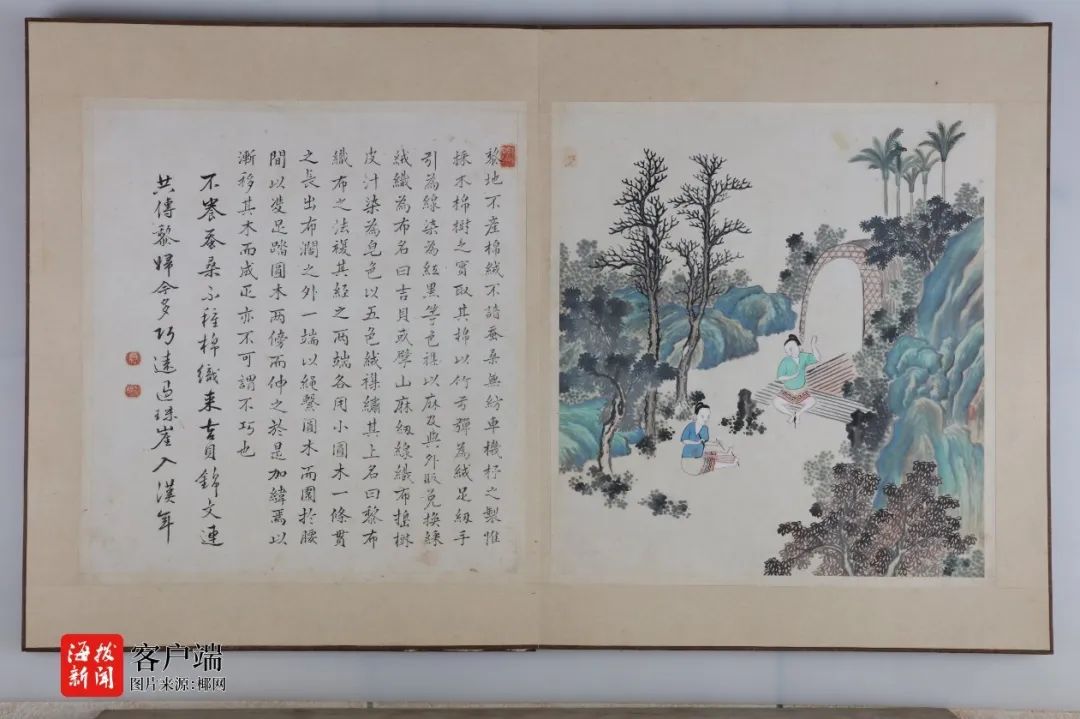 黎地不産棉絨不諳蚕桑無紡車機杼之製惟
採木棉樹之實取其棉以竹弓彈為絨足紉手
引為線染為紅黑等色襍以麻及與外販兌換綵
絨織為布名曰吉貝或擘山麻紉線織布搥樹
皮汁染為皂色以五色絨襍繡其上名曰黎布
織布之法複其經之兩端各用小圓木一條貫
之長出布濶之外一端以繩繫圓木而圍於腰
間以雙足踏圓木兩傍而伸之於是加緯焉以
漸移其木而成疋亦不可謂不巧也
不養蚕桑不種棉織來吉貝錦文連
共傳黎婦今多巧遠過珠崖入漢年
海拔
新闻
客户端
图片来源:椰网